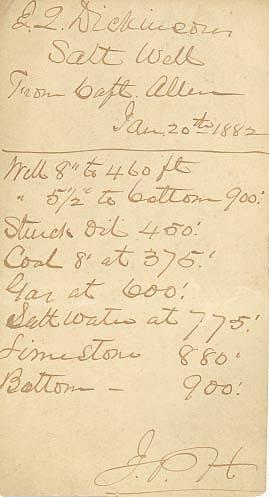 J. Q. Dickinson's
Salt Well
From Capt. Allen
Jan. 20th 1882
Well 8" to 460 ft
" 5 1/2" to bottom 900'
Struck Oil 450'
Coal 8' at 375'
Gas at 600'
Salt Water at 775'
Limestone 880'
Bottom - 900'
J. P. H